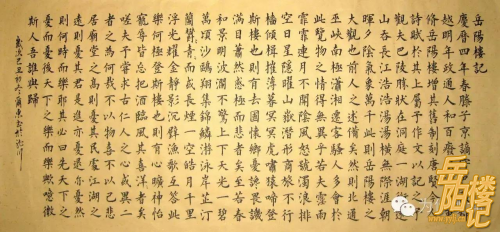 岳陽樓記
慶曆四年春滕子京謫
越明年政通人和百廢
脩岳陽樓增其舊制刻唐賢
詩賦於其上屬予作文以記之予
觀夫巴陵勝狀在洞庭一湖銜
山吞長江浩浩湯湯橫無際涯朝
暉夕陰氣象萬千此則岳陽樓之
大觀也前人之述備矣然則北通
巫峽南極瀟湘遷客騷人多會於
此覽物之情得無異乎若夫霪雨
霏霏連月不開陰風怒號濁浪排
空日星隱曜山嶽潛形商旅不行
檣傾楫摧薄暮冥冥虎嘯猿啼登
斯樓也則有去國懷鄉憂讒畏譏
滿目蕭然感極而悲者矣至若春
和景明波瀾不驚上下天光一碧
萬頃沙鷗翔集錦鱗游泳岸芷汀
蘭郁郁青青而或長煙一空皓月千里
浮光耀金靜影沉璧漁歌互答此
樂何極登斯樓也則有心曠神怡
寵辱皆忘把酒臨風其喜洋洋者矣
嗟夫予嘗求古仁人之心或異二
者之為何哉不以物喜不以己悲
居廟堂之高則憂其民處江湖之
遠則憂其君是進亦憂退亦憂然
則何時而樂耶其必曰先天下之
憂而憂後天下之樂而樂歟噫微
斯人吾誰與歸
歲次己丑初冬
岳阳楼记